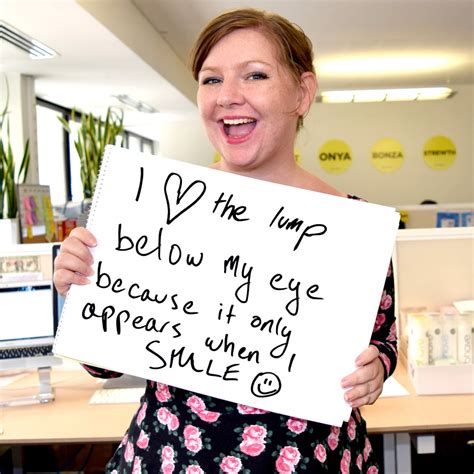 ONYA
BONZA
STREWTH
I ♡ the lump
below my eye
because it only
appears when I
SMILE ☺